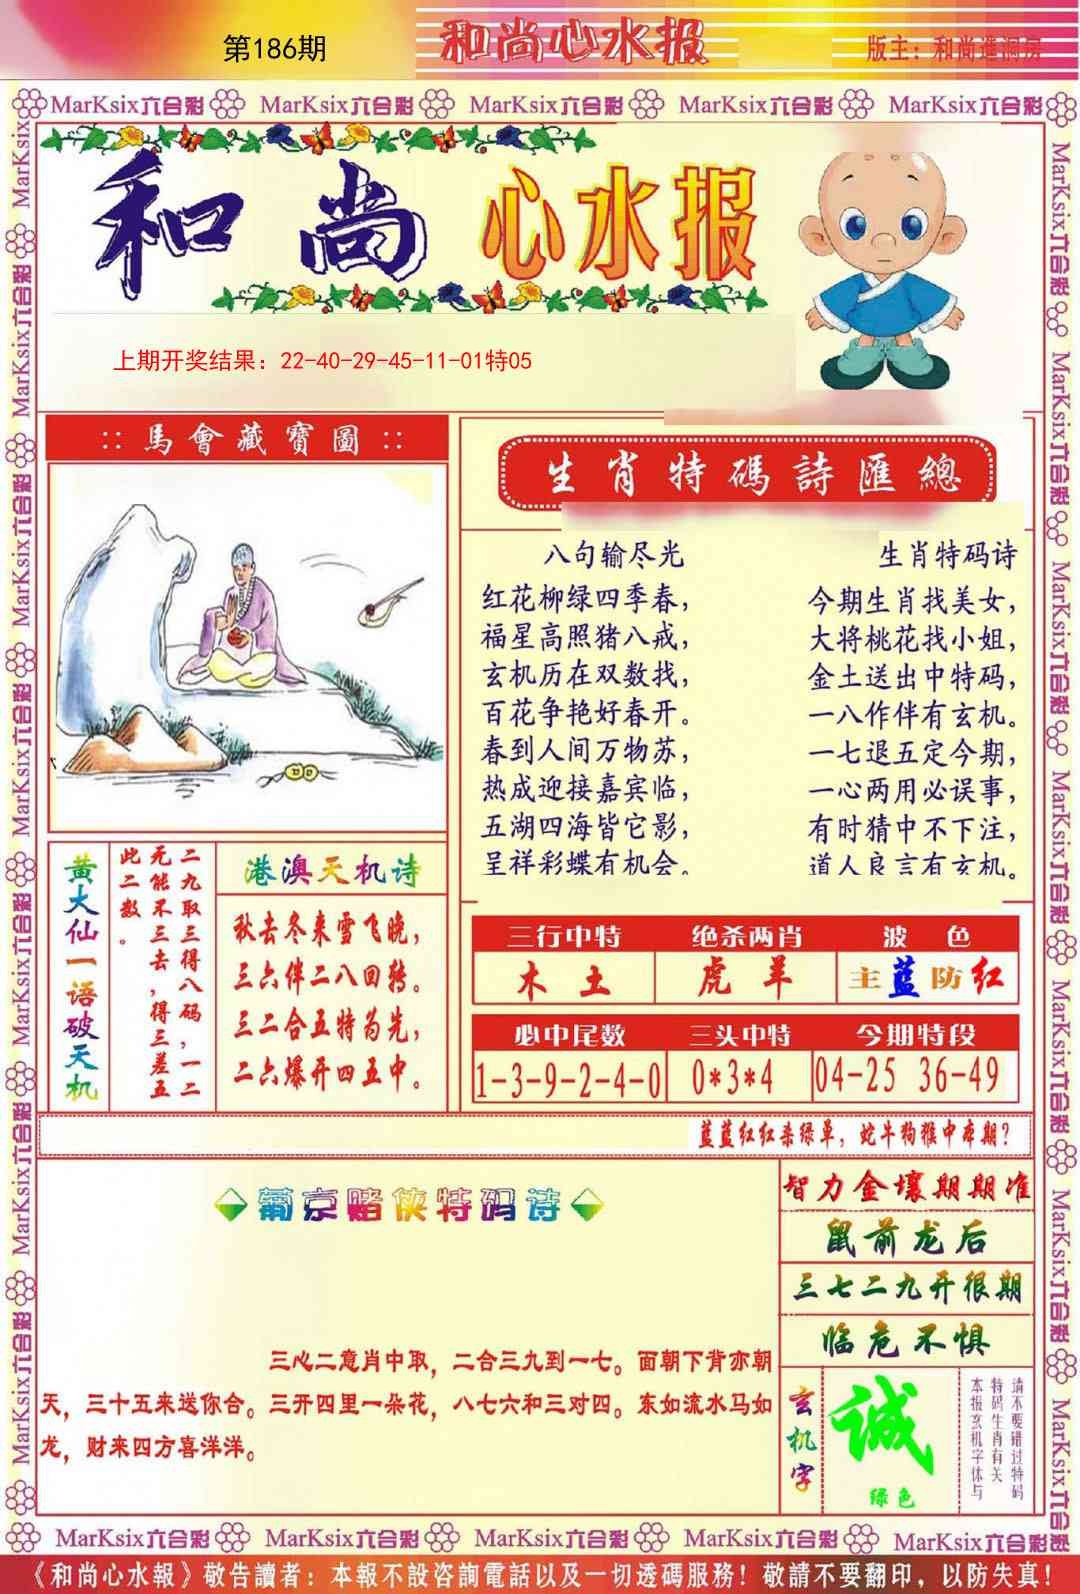 第186期
和尚心水报
版主：和尚進洞房
MarKsix六合彩 MarKsix六合彩 MarKsix六合彩 MarKsix六合彩 MarKsix六合彩
和尚 心水报
上期开奖结果：22-40-29-45-11-01特05
:: 馬會藏寶圖 ::
生肖特碼詩匯總
八句输尽光
红花柳绿四季春，
福星高照猪八戒，
玄机历在双数找，
百花争艳好春开。
春到人间万物苏，
热成迎接嘉宾临，
五湖四海皆它影，
呈祥彩蝶有机会。
生肖特码诗
今期生肖找美女，
大将桃花找小姐，
金土送出中特码，
一八作伴有玄机。
一七退五定今期，
一心两用必误事，
有时猜中不下注，
道人良言有玄机。
黄大仙一语破天机
二九取三得八码，一二
无能不三去，得三差五
此二数。
港澳天机诗
秋去冬来雪飞晚，
三六伴二八回转。
三二合五特为先，
二六爆开四五中。
三行中特 绝杀两肖 波色
木土 虎羊 主蓝防红
必中尾数 三头中特 今期特段
1-3-9-2-4-0 0*3*4 04-25 36-49
蓝蓝红红杀绿单，蛇牛狗猴中本期？
葡京赌侠特码诗
三心二意肖中取，二合三九到一七。面朝下背亦朝
天，三十五来送你合。三开四里一朵花，八七六和三对四。东如流水马如
龙，财来四方喜洋洋。
智力金壤期期准
鼠前龙后
三七二九开很期
临危不惧
玄机字
诚
绿色
请不要错过特码
特码生肖有关
本报玄机字体与
MarKsix六合彩 MarKsix六合彩 MarKsix六合彩 MarKsix六合彩 MarKsix六合彩
《和尚心水報》敬告讀者：本報不設咨詢電話以及一切透碼服務！敬請不要翻印，以防失真！